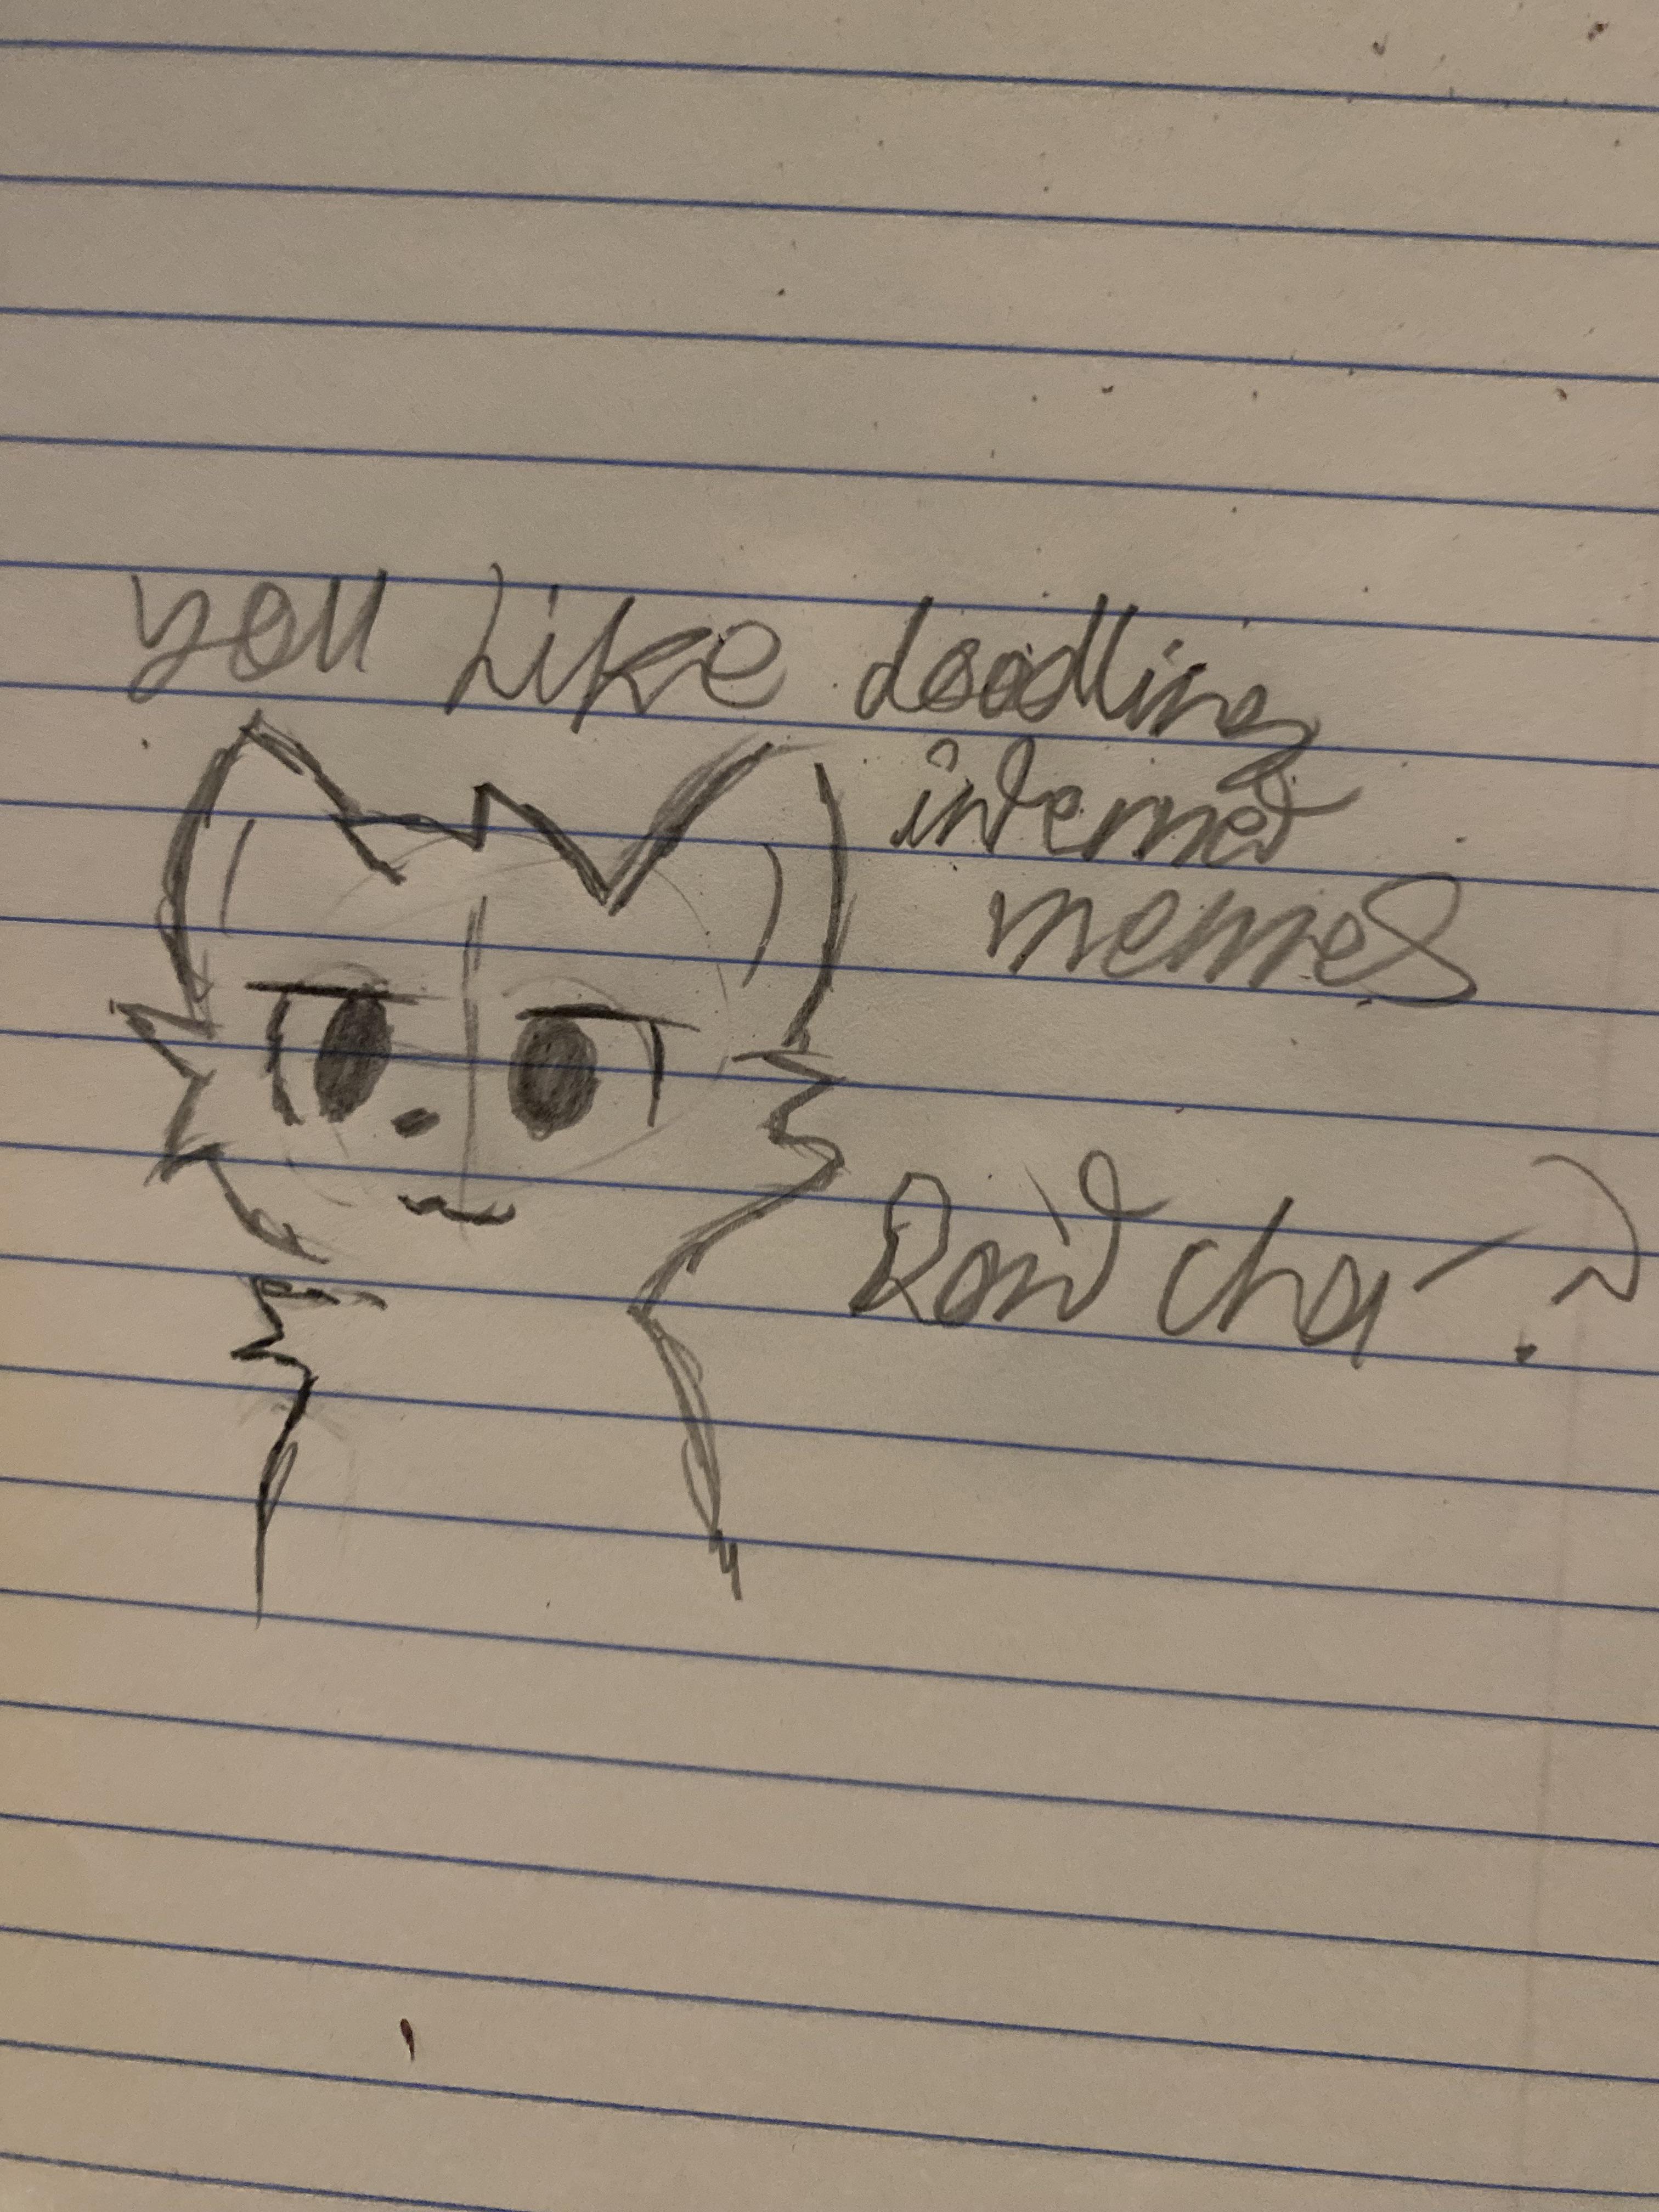 you Like doodling
internet
memes
Don't cha?